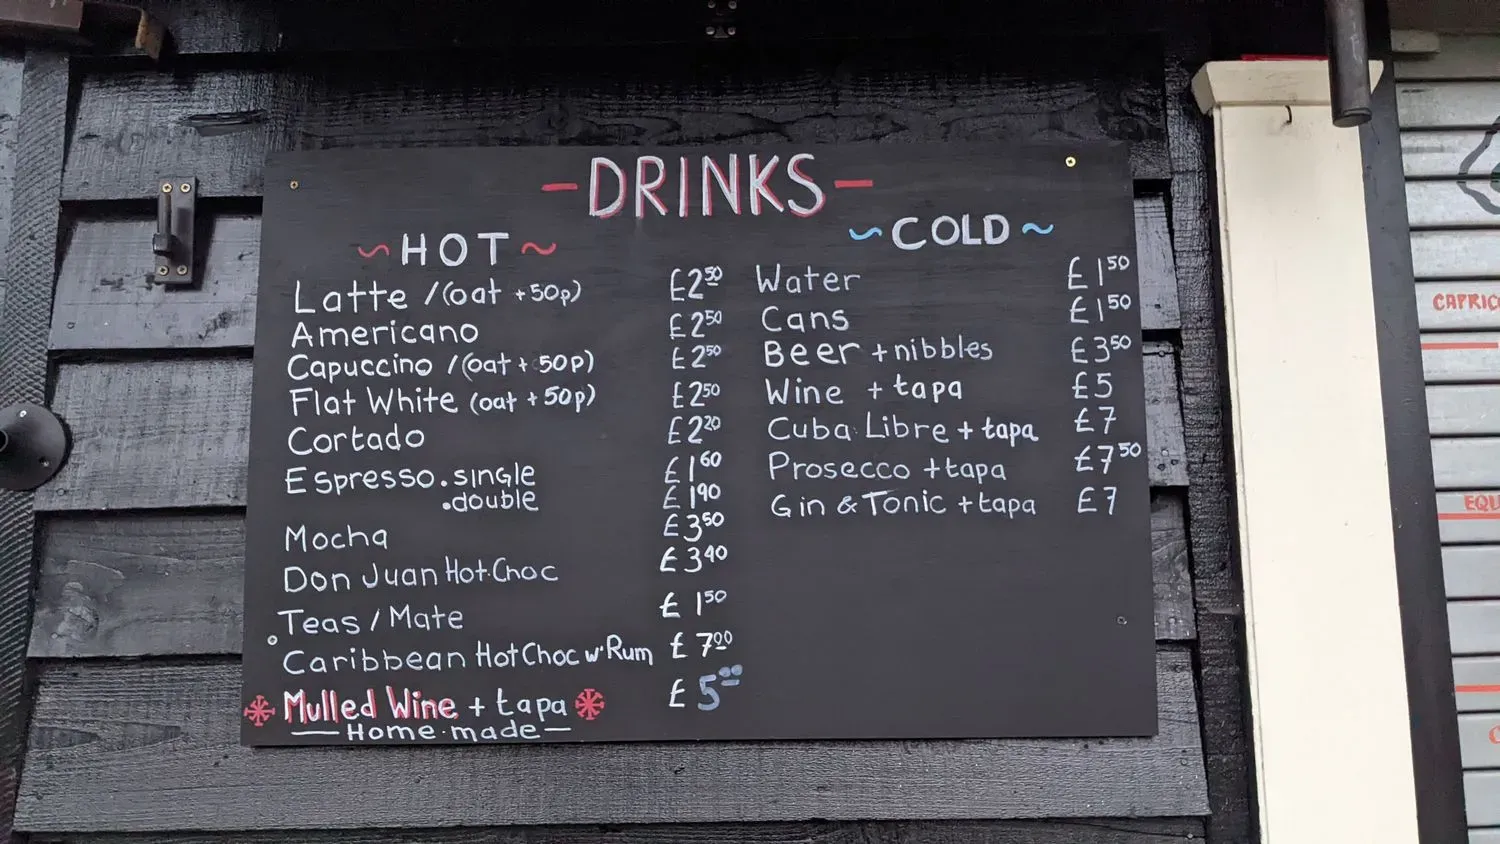 -DRINKS-
~HOT~
Latte /(oat +50p) £2.50
Americano £2.50
Capuccino /(oat + 50p) £2.50
Flat White (oat +50p) £2.50
Cortado £2.20
Espresso .single £1.60
.double £1.90
Mocha £3.50
Don Juan Hot.Choc £3.40
Teas / Mate £1.50
Caribbean Hot Choc w. Rum £7.00
Mulled Wine + tapa £5.00
Home.made
~COLD~
Water £1.50
Cans £1.50
Beer + nibbles £3.50
Wine + tapa £5
Cuba Libre + tapa £7
Prosecco + tapa £7.50
Gin & Tonic + tapa £7